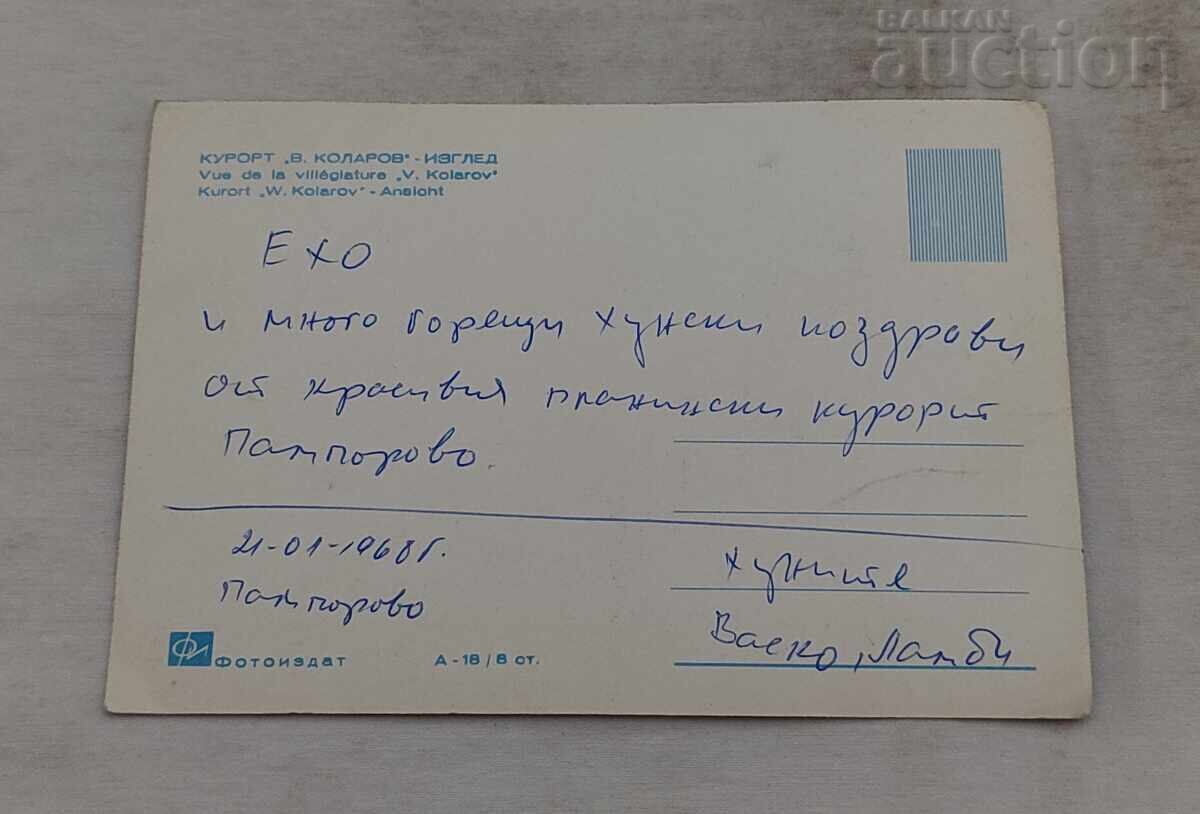 BALKAN
auction
КУРОРТ „В. КОЛАРОВ" - ИЗГЛЕД
Vue de la villéglature „V. Kolarov"
Kurort „W. Kolarov" - Ansicht
ЕХО
и много горещи хунски поздрави
от красивия планински курорт
Пампорово.
21-01-1968 г.
Пампорово
Хуните
Васко, Ламби
ФИ ФОТОИЗДАТ
А-18 / 8 ст.